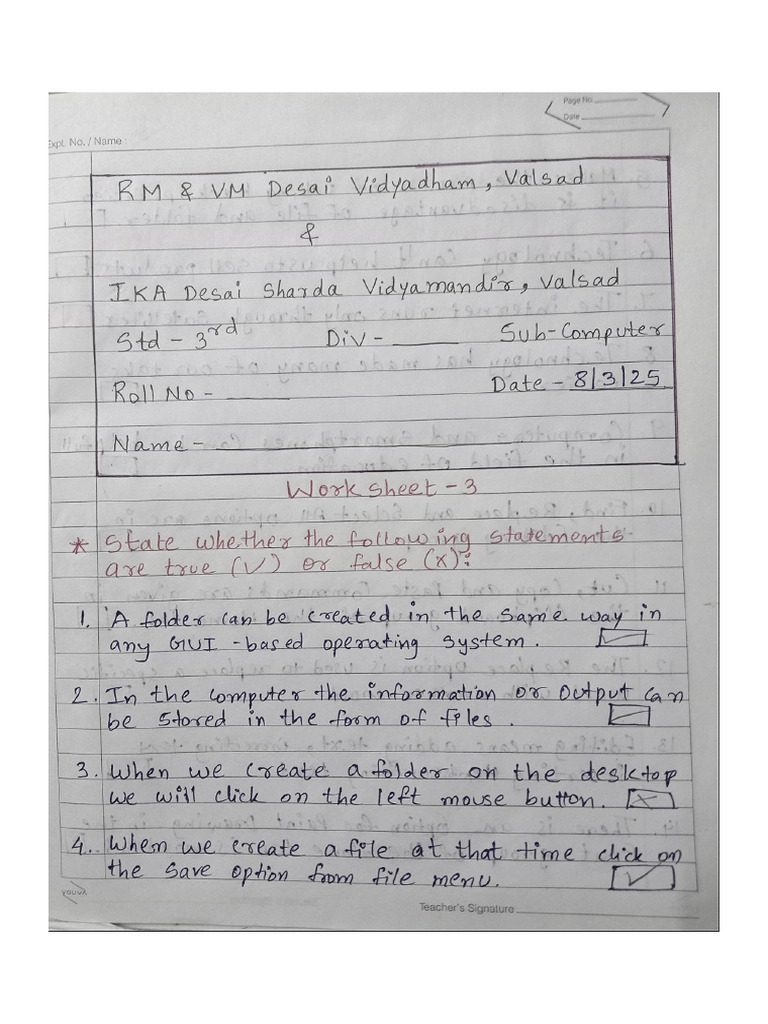 Page No.
Date
Expt. No. / Name :
RM & VM Desai Vidyadham, Valsad
&
IKA Desai Sharda Vidyamandir, Valsad
Std - 3rd Div - Sub - Computer
Roll No - Date - 8/3/25
Name -
Work sheet - 3
* State whether the following statements
are true (✓) or false (x):
1. A folder can be created in the same way in
any GUI - based operating system. ✓
2. In the computer the information or output can
be stored in the form of files. ✓
3. When we create a folder on the desktop
we will click on the left mouse button. x
4. When we create a file at that time click on
the save option from file menu. ✓
YOUVA
Teacher's Signature